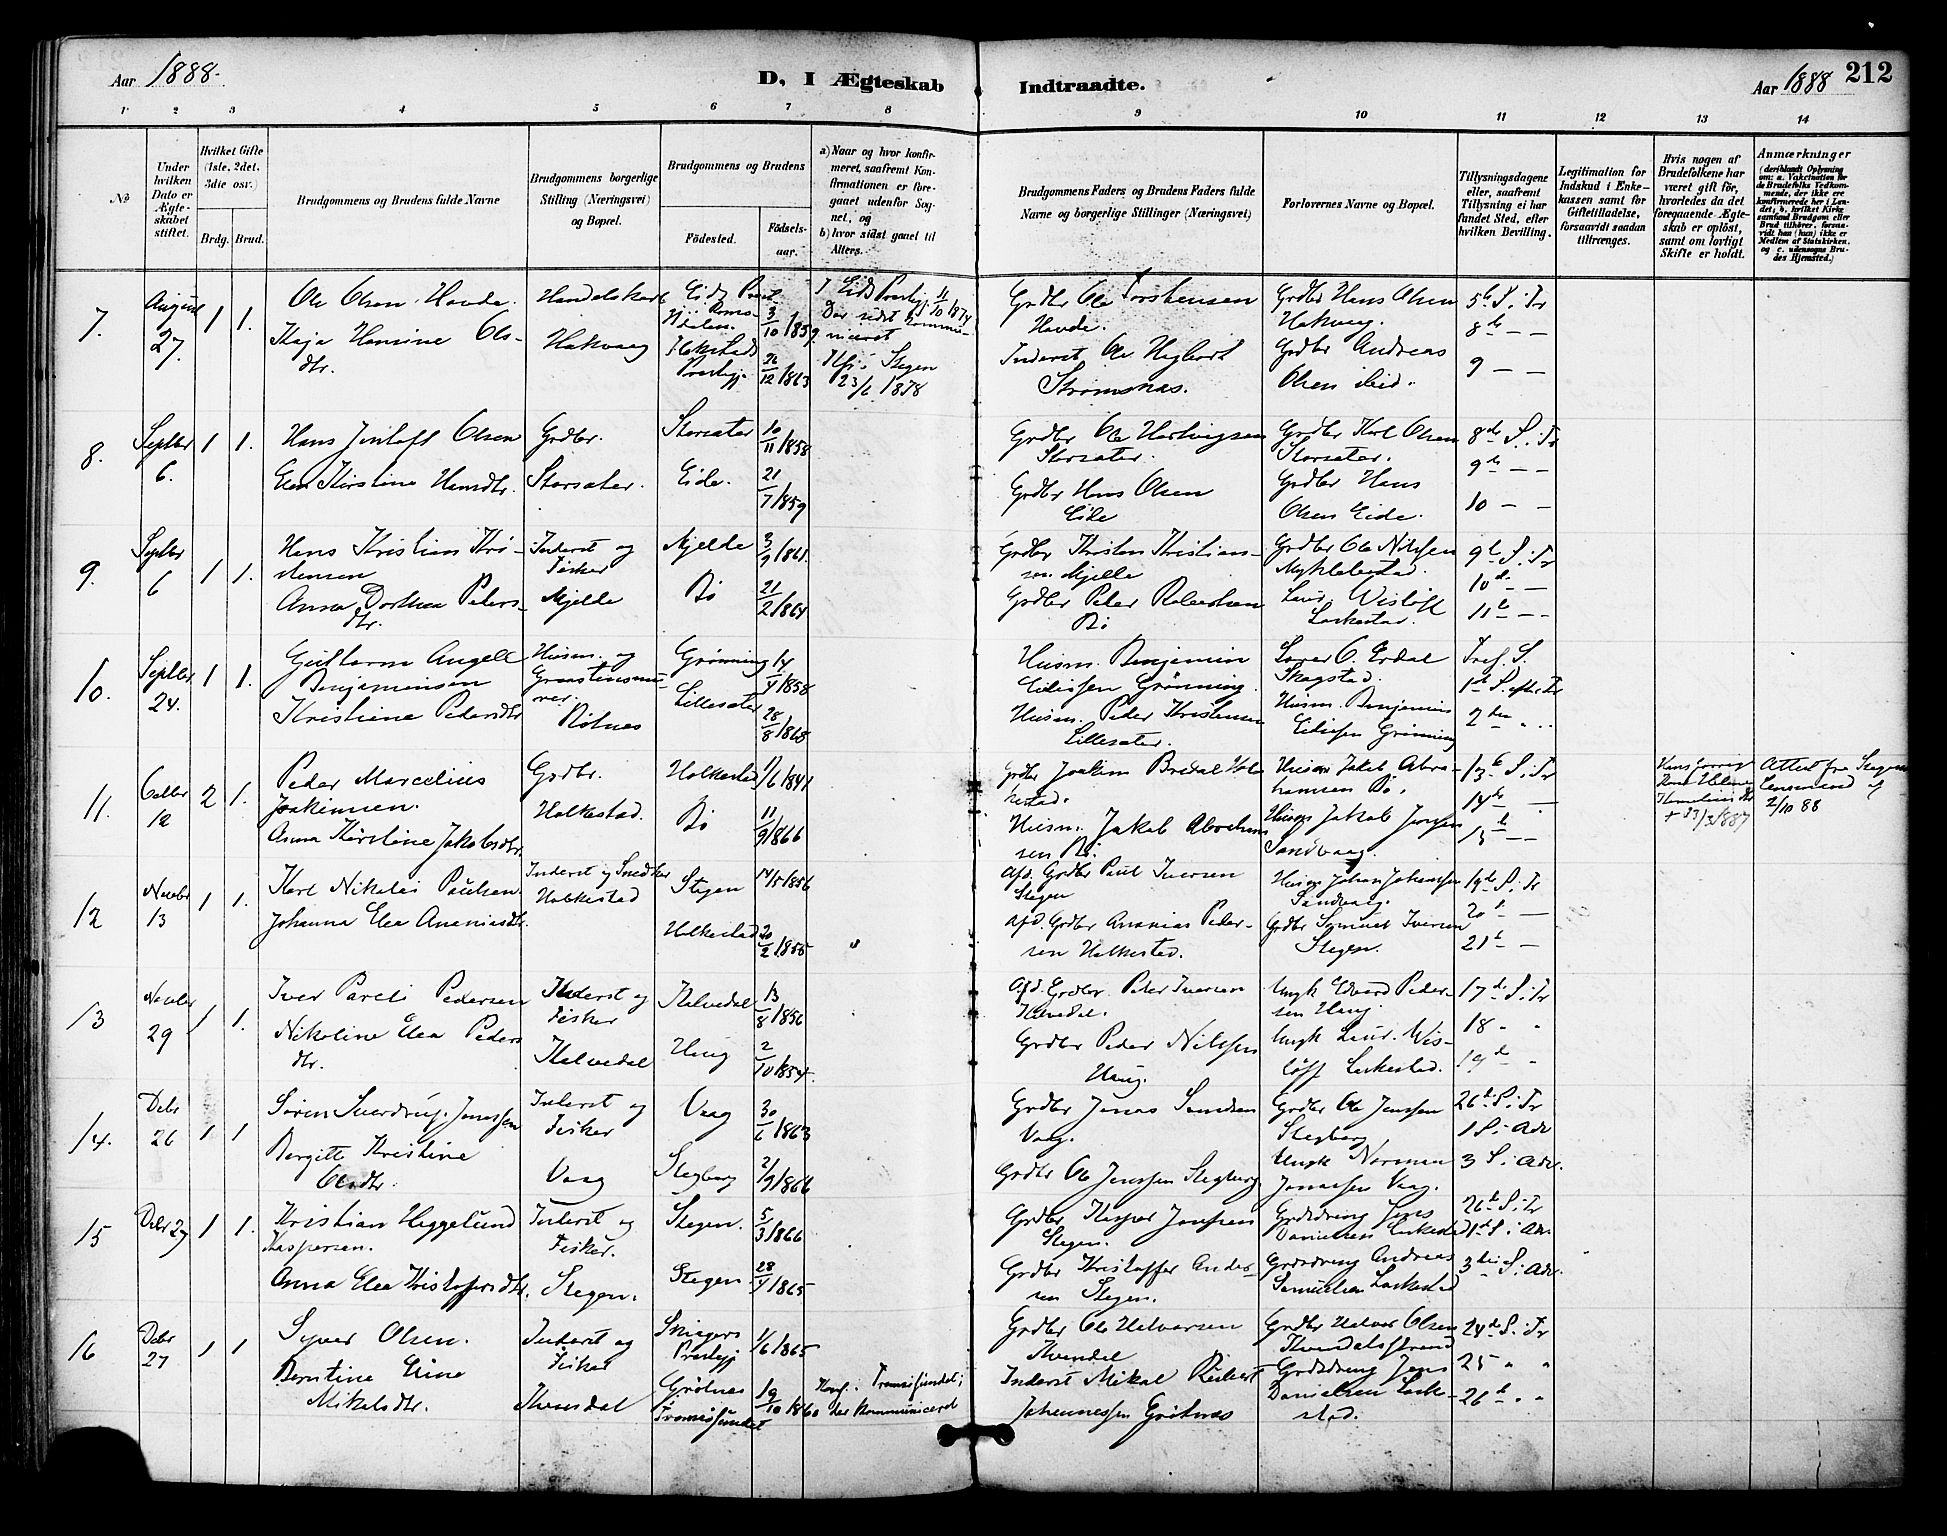 Aar 1888.
D, I Ægteskab Indtraadte.
Aar 1888
212
1 2 3 4 5 6 7 8 9 10 11 12 13 14
No
Under hvilken Dato er Ægteskabet stiftet.
Hvilket Gifte (1ste, 2det, 3die osv.)
Brdg. Brud.
Brudgommens og Brudens fulde Navne
Brudgommens borgerlige Stilling (Næringsvei) og Bopæl.
Brudgommens og Brudens
Fødested.
Fødselsaar.
a) Naar og hvor konfirmeret, saafremt Konfirmationen er foregaaet udenfor Sognet, og
b) hvor sidst gaaet til Alters.
Brudgommens Faders og Brudens Faders fulde Navne og borgerlige Stillinger (Næringsvei)
Forlovernes Navne og Bopæl.
Tillysningsdagene eller, saafremt Tillysning ei har fundet Sted, efter hvilken Bevilling.
Legitimation for Indskud i Enkekassen samt for Giftetilladelse, forsaavidt saadan tiltrænges.
Hvis nogen af Brudefolkene har været gift før, hvorledes da det foregaaende Ægteskab er opløst, samt om lovligt Skifte er holdt.
Anmærkninger
(deriblandt Oplysning om: a. Vakcination for de Brudefolks Vedkommende, der ikke ere konfirmerede her i Landet; b. hvilket Kirkesamfund Brudgom eller Brud tilhører, forsaavidt han (hun) ikke er Medlem af Statskirken, og c. udensogns Brudes Hjemsted.)
7. August 27. 1 1.
Ole Olsen Hovde.
Kaja Hansine Olsdtr.
Handelskarl
Hakvaag
Eids Præstgj. Romsdalen. 3/10 1859
Flakstads Præstegj. 26/12 1863
I Eids Prestegj. 11/10 1874
Der sidst kommuniceret
Ilfi. Stegen 23/6 1878
Grdbr Ole Torstensen Hovde.
Inderst Ole Hegbart Strømsnas.
Grdbr Hans Olsen Hakvag.
Grdbr Andreas Olsen ibid.
5te S. i Tr
8de — —
9 — —
8. Septbr 6. 1 1.
Hans Jentoft Olsen
Elen Kirstine Hansdtr.
Grdbr.
Storsater.
Storsater 10/11 1858
Eide. 21/7 1859
Grdbr Ole Hartvigsen Storsater.
Grdbr Hans Olsen Eide
Grdbr Karl Olsen Storsater.
Grdbr Hans Olsen Eide.
8de S. i Tr
9de — —
10 — —
9. Septbr 6 1 1.
Hans Kristian Kristensen
Anna Dorthea Petersdtr.
Inderst og Fisker
Mjelde
Mjelde 3/9 1861
Bø 21/2 1864
Grdbr Kristen Kristiansen Mjelle
Grdbr Peder Robertsen Bø
Grdbr Ole Nilsen Myklebostad.
Laur. Wisløff Laskestad.
9de S. i Tr
10de — —
11te — —
10. Septbr 24. 1 1.
Guttorm Angell Benjaminsen
Kristiene Pedersdtr
Husm. og Graastensmurer.
Rötnes
Grønning 14/4 1858
Lillesater 28/8 1868
Husm. Benjamin Eidissen Grønning.
Husm. Peder Kristensen Lillesater.
Lærer O. Erdal Skagstad.
Husm. Benjamin Eidissen Grønning
Tref. S.
1ste S. efter Tr
2den " "
11. Octbr 12 2 1.
Peder Marcelius Joakimsen.
Anna Kirstine Jakobsdtr.
Grdbr.
Holkestad.
Holkestad 11/6 1841
Bø 11/9 1866
Grdbr Joakim Bredal Holkestad.
Husm. Jakob Abrahamsen Bø.
Husm Jakob Abrahamsen Bø.
Husm Jakob Jensen Sandvaag.
13de S. i Tr
14de —
15de — —
+ 23/3 1887
Attest fra Stegens Lensmand af 2/10 88
12 Novbr 13 1 1.
Karl Nikolai Paulsen.
Johanna Elea Ananiasdtr.
Inderst og Snedker
Holkestad
Stegen 14/5 1856
Holkestad 20/2 1855
Afd. Grdbr Paul Iversen Stegen
Afd. Grdbr Ananias Pedersen Holkestad.
Husm Johan Johansen Sandvaag.
Grdbr Samuel Iversen Stegen.
19de S. i Tr
20de —
21de —
13 Novbr 29 1 1.
Iver Pareli Pedersen
Nikoline Elea Pedersdtr.
Inderst og Fisker
Kalvedal
Kalvedal 13/8 1856
Haug 2/10 1854.
Afd. Grdbr. Peter Iversen Kalvedal.
Grdbr Peder Nilssen Haug.
Ungk Edvard Pedersen Haug.
Ungk Laur. Wisløff Laskestad.
17de S. i Tr
18 " "
19de "
14. Debr 26 1 1
Søren Sverdrup Jonassen
Bergitte Kristine Olsdtr.
Inderst og Fisker
Vaag
Vaag 30/6 1863
Stegberg 2/9 1866
Grdbr Jonas Sandsen Vaag.
Grdbr Ole Jenssen Stegberg
Grdbr Ole Jenssen Stegberg,
Ungk Norman Jonassen Vaag.
26de S. i Tr
1 S. i Adv
3 S. i Adv.
15 Debr 27 1 1.
Kristian Heggelund Kaspersen.
Anna Elea Kristoffersdtr.
Inderst og Fisker.
Stegen.
Stegen. 5/3 1866
Stegen 28/4 1865
Grdbr Kasper Jenssen Stegen.
Grdbr Kristoffer Andersen Stegen.
Grdsdreng Jens Danielsen Laskestad
Grdsdreng Andreas Samuelsen Laskestad
26de S. i Tr
1ste S. i Adv.
3die S. i Adv.
16 Debr 27 1 1
Syver Olsen.
Berntine Eline Mikalsdtr.
Inderst og Fisker
Kvendal
Skiagers Prestegj 1/6 1865
Grøtnes Tromsøsundet 19/10 1860
Konf. i Tromsøsundet; der kommuniceret
Grdbr Ole Halvorsen Kvendal
Inderst Mikal Rickert Johannessen Grøtnas
Grdbr Halvor Olsen Kvendalsstrand
Grdsdreng Jens Danielsen Laskestad.
24de S. i Tr
25 " "
26de " "